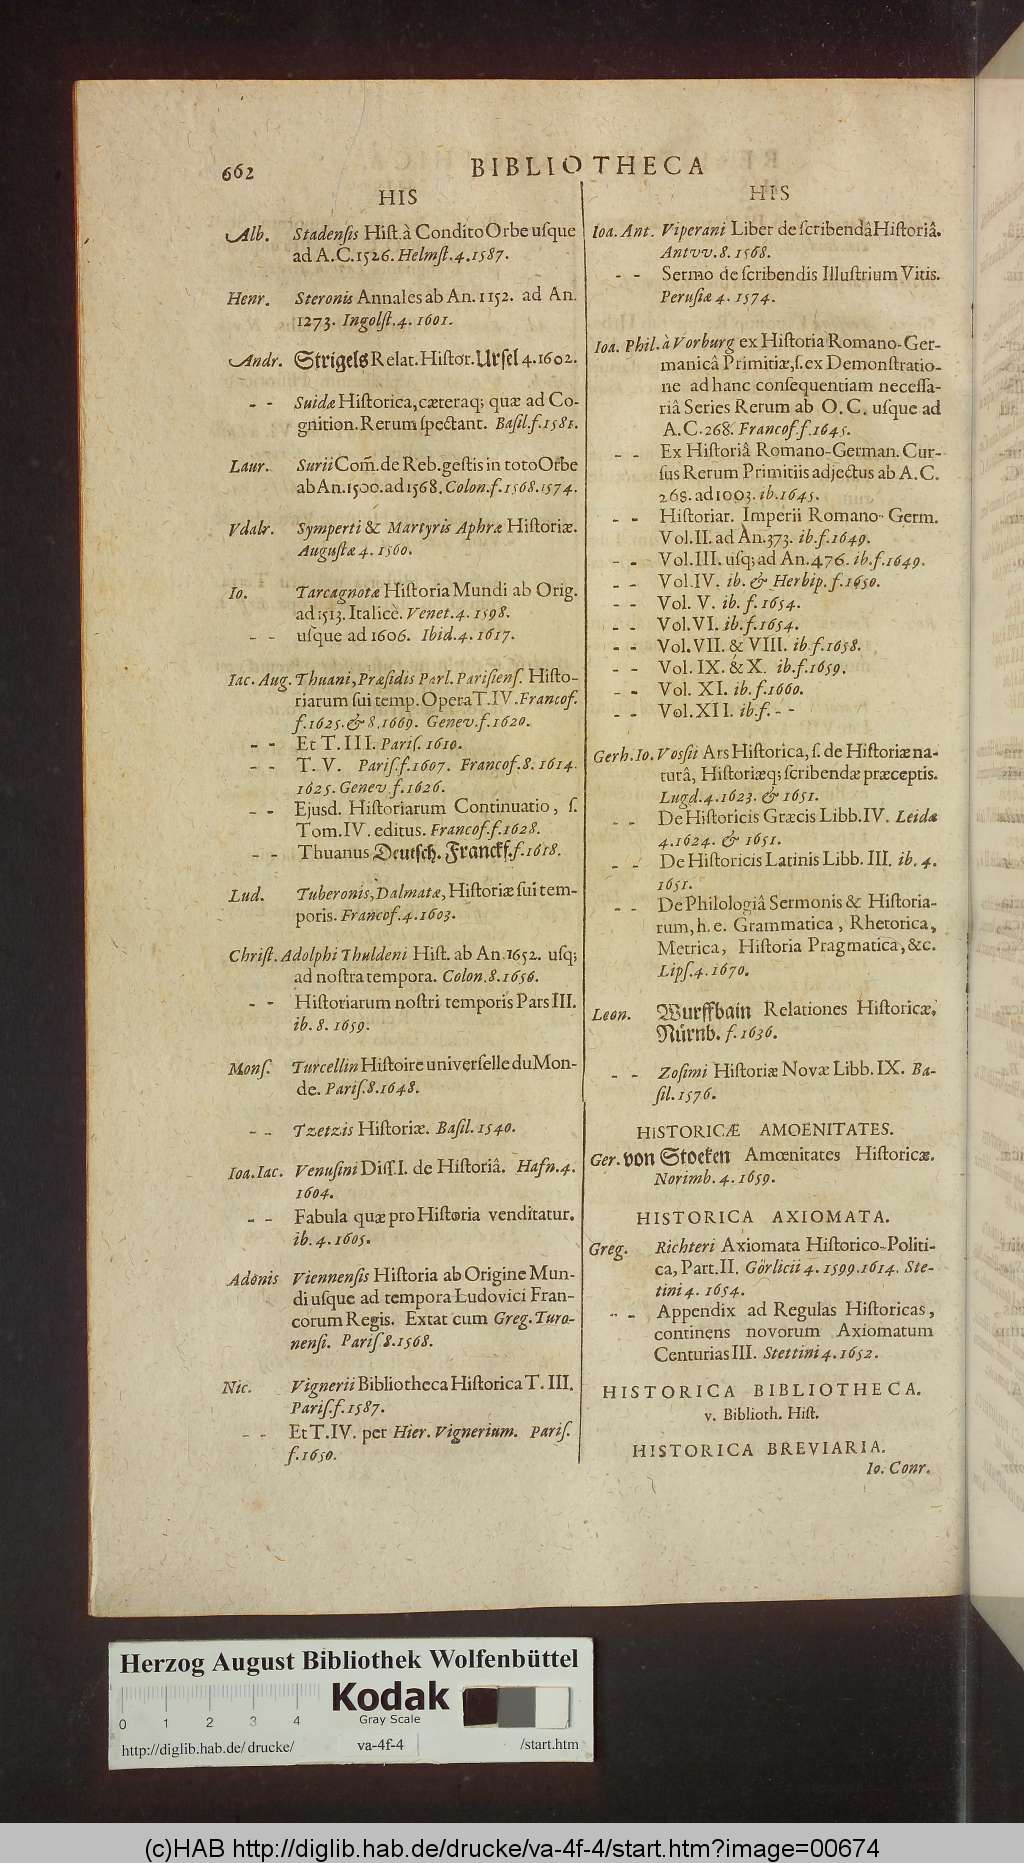 662
BIBLIOTHECA
HIS
Alb. Stadensis Hist. à Condito Orbe usque
ad A.C. 1526. Helmst. 4. 1587.
Henr. Steronis Annales ab An. 1152. ad An.
1273. Ingolst. 4. 1601.
Andr. Strigels Relat. Histor. Ursel 4. 1602.
- - Suidæ Historica, cæteraq; quæ ad Co-
gnition. Rerum spectant. Basil. f. 1581.
Laur. Surii Com̃. de Reb. gestis in toto Orbe
ab An. 1500. ad 1568. Colon. f. 1568. 1574.
Vdalr. Symperti & Martyris Aphræ Historiæ.
Augustæ 4. 1560.
Io. Tarcagnotæ Historia Mundi ab Orig.
ad 1513. Italicè. Venet. 4. 1598.
- - usque ad 1606. Ibid. 4. 1617.
Iac. Aug. Thuani, Præsidis Parl. Parisiens. Histo-
riarum sui temp. Opera T. IV. Francof.
f. 1625. & 8. 1669. Genev. f. 1620.
- - Et T. III. Paris. 1610.
- - T. V. Paris. f. 1607. Francof. 8. 1614.
1625. Genev. f. 1626.
- - Ejusd. Historiarum Continuatio, s.
Tom. IV. editus. Francof. f. 1628.
- - Thuanus Deutsch. Franckf. f. 1618.
Lud. Tuberonis, Dalmatæ, Historiæ sui tem-
poris. Francof. 4. 1603.
Christ. Adolphi Thuldeni Hist. ab An. 1652. usq;
ad nostra tempora. Colon. 8. 1656.
- - Historiarum nostri temporis Pars III.
ib. 8. 1659.
Mons. Turcellin Histoire universelle du Mon-
de. Paris. 8. 1648.
- - Tzetzis Historiæ. Basil. 1540.
Ioa. Iac. Venusini Diss. I. de Historiâ. Hafn. 4.
1604.
- - Fabula quæ pro Historia venditatur.
ib. 4. 1605.
Adonis Viennensis Historia ab Origine Mun-
di usque ad tempora Ludovici Fran-
corum Regis. Extat cum Greg. Turo-
nensi. Paris 8. 1568.
Nic. Vignerii Bibliotheca Historica T. III.
Paris. f. 1587.
- - Et T. IV. per Hier. Vignerium. Paris.
f. 1650.
HIS
Ioa. Ant. Viperani Liber de scribendâ Historiâ.
Antvv. 8. 1568.
- - Sermo de scribendis Illustrium Vitis.
Perusiæ 4. 1574.
Ioa. Phil. à Vorburg ex Historia Romano-Ger-
manicâ Primitiæ, s. ex Demonstratio-
ne ad hanc consequentiam necessa-
riâ Series Rerum ab O. C. usque ad
A.C. 268. Francof. f. 1645.
- - Ex Historiâ Romano-German. Cur-
sus Rerum Primitiis adjectus ab A. C.
268. ad 1003. ib. 1645.
- - Historiar. Imperii Romano-Germ.
Vol. II. ad An. 373. ib. f. 1649.
- - Vol. III. usq; ad An. 476. ib. f. 1649.
- - Vol. IV. ib. & Herbip. f. 1650.
- - Vol. V. ib. f. 1654.
- - Vol. VI. ib. f. 1654.
- - Vol. VII. & VIII. ib f. 1658.
- - Vol. IX. & X. ib. f. 1659.
- - Vol. XI. ib. f. 1660.
- - Vol. XII. ib. f. - -
Gerh. Io. Vossii Ars Historica, s. de Historiæ na-
turâ, Historiæq; scribendæ præceptis.
Lugd. 4. 1623. & 1651.
- - De Historicis Græcis Libb. IV. Leidæ
4. 1624. & 1651.
- - De Historicis Latinis Libb. III. ib. 4.
1651.
- - De Philologiâ Sermonis & Historia-
rum, h. e. Grammatica, Rhetorica,
Metrica, Historia Pragmatica, &c.
Lips. 4. 1670.
Leon. Wurffbain Relationes Historicæ.
Nürnb. f. 1636.
- - Zosimi Historiæ Novæ Libb. IX. Ba-
sil. 1576.
HISTORICÆ AMOENITATES.
Ger. von Stoeken Amœnitates Historicæ.
Norimb. 4. 1659.
HISTORICA AXIOMATA.
Greg. Richteri Axiomata Historico-Politi-
ca, Part. II. Görlicii 4. 1599. 1614. Ste-
tini 4. 1654.
- - Appendix ad Regulas Historicas,
continens novorum Axiomatum
Centurias III. Stettini 4. 1652.
HISTORICA BIBLIOTHECA.
v. Biblioth. Hist.
HISTORICA BREVIARIA.
Io. Conr.
Herzog August Bibliothek Wolfenbüttel
Kodak
Gray Scale
0 1 2 3 4
http://diglib.hab.de/drucke/ va-4f-4 /start.htm
(c)HAB http://diglib.hab.de/drucke/va-4f-4/start.htm?image=00674